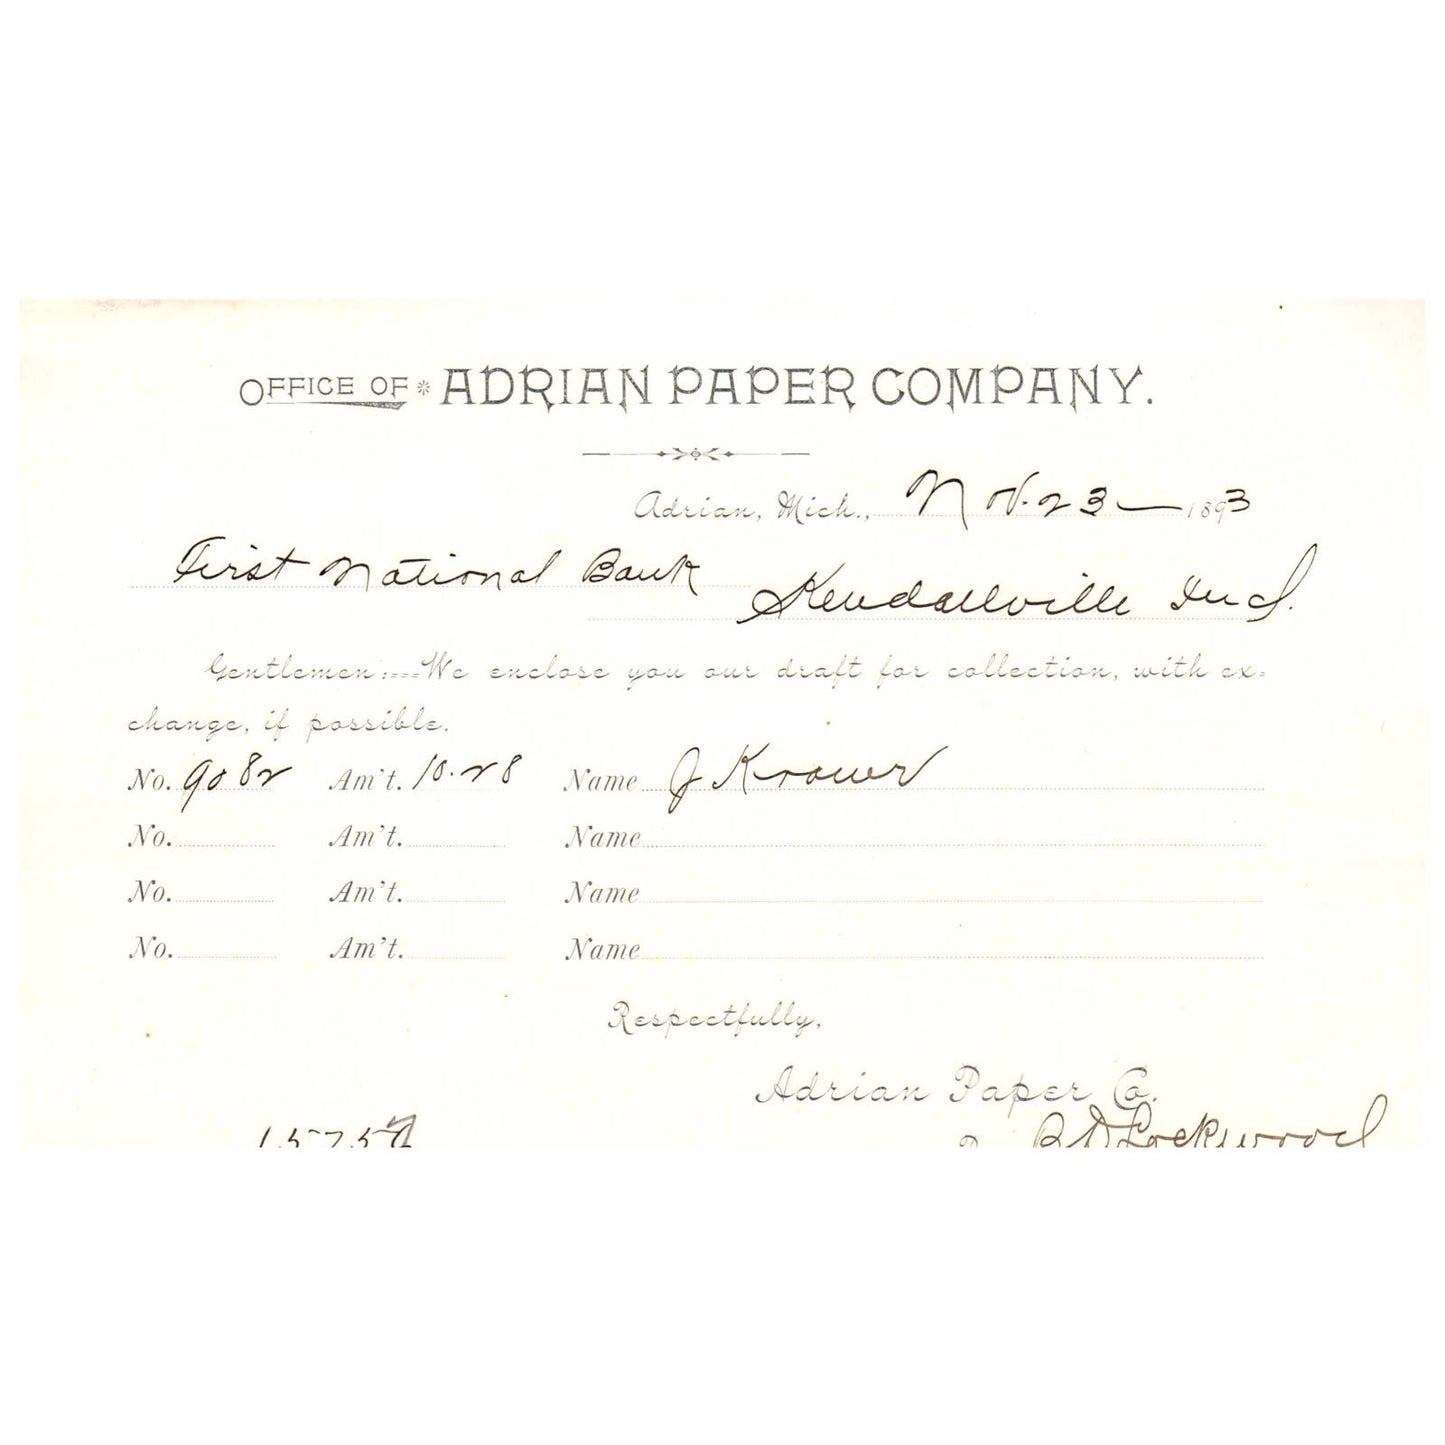 OFFICE OF * ADRIAN PAPER COMPANY.
Adrian, Mich., Nov. 23 — 1893
First National Bank
Kendallville Ind.
Gentlemen:===We enclose you our draft for collection, with ex=
change, if possible.
No. 9082 Am't. 10.28 Name J
No. Am't. Name
No. Am't. Name
No. Am't. Name
Respectfully,
Adrian Paper Co.
Lockwood